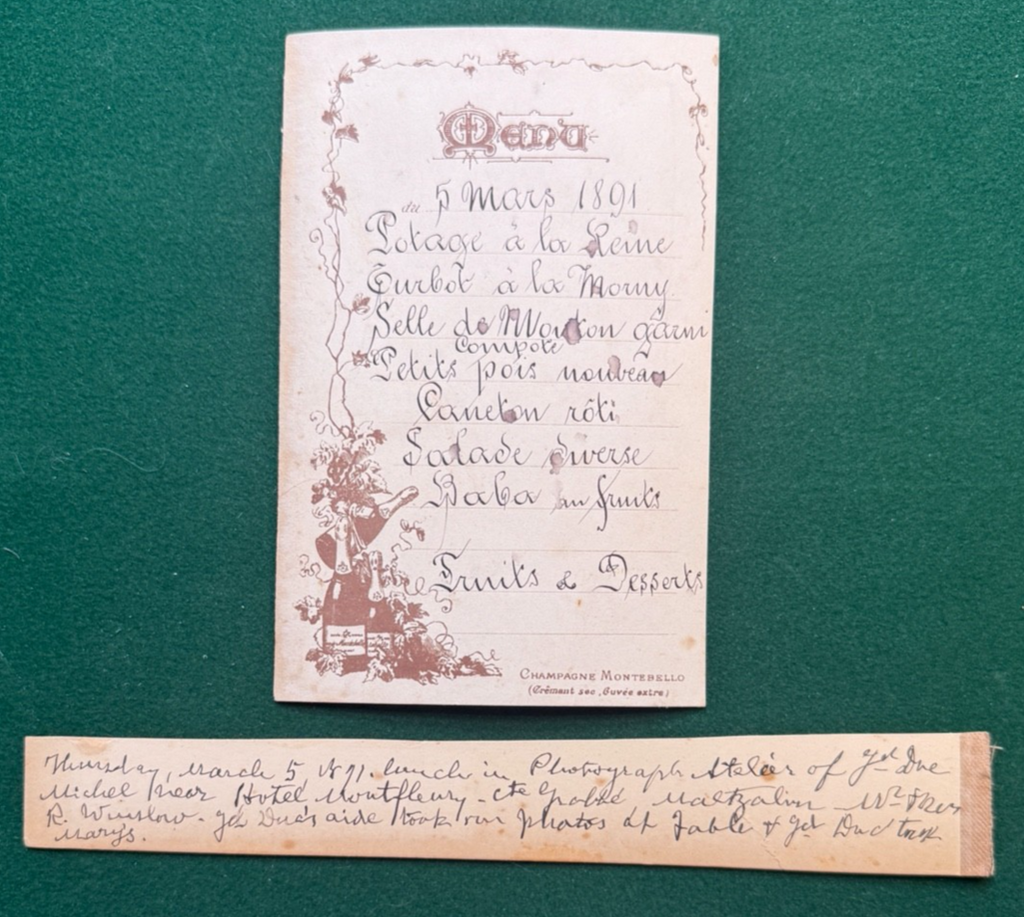 Menu
du 5 Mars 1891
Potage à la Reine
Turbot à la Morny
Selle de Mouton garni
Compote
Petits pois nouveau
Caneton rôti
Salade diverse
Baba au fruits
Fruits & Desserts
CHAMPAGNE MONTEBELLO
(Crémant sec, Cuvée extra)
Thursday, March 5 1891. lunch in Photograph Atelier of Gd Duc
Michel near Hotel Montfleury - cte Maltzahn - Mr & Mrs
R. Winslow - Gd Duc's aide took our photos at Table & Gd Duc took
Mary's.